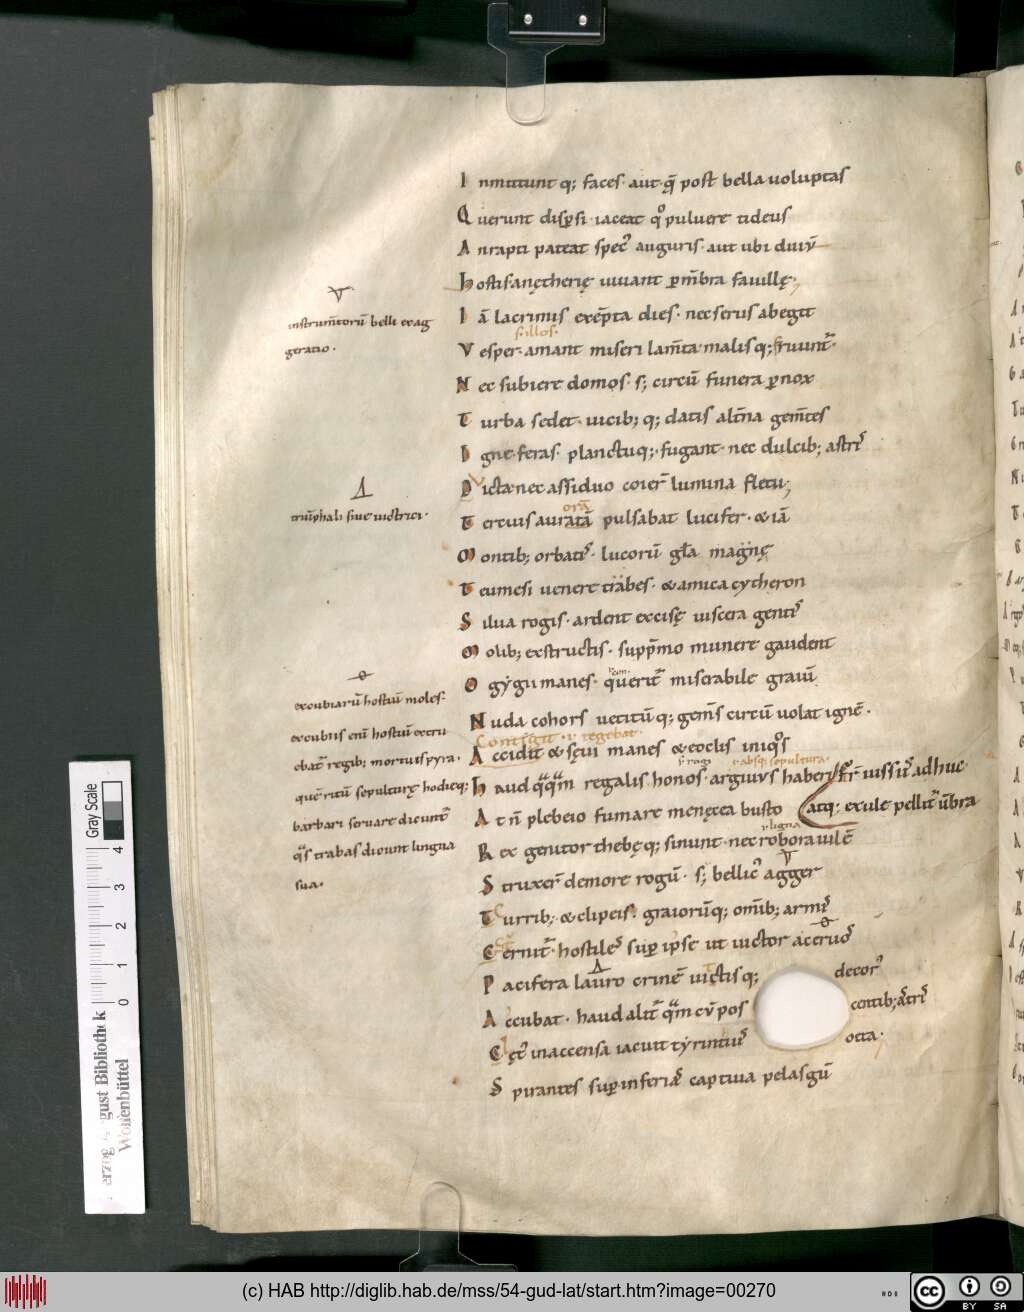 Inmittunt q; faces· aut q̄ post bella uoluptas
Querunt disp̄si· iaceat qͦ puluere tideus
Anrapti pateat spec' auguris· aut ubi diuū
hostis anę therię uiuant p̄ mb̄ra fauillę·
Iā lacrimis exēpta dies· nec serus abegit
s· illos·
Vesper· amant miseri lam̄ta malisq; fruunt̄·
Nec subiere domos· s; circū funera pnox
Turba sedet· uicib; q; datis alt̄na gem̄tes
Igne feras· planctuq; fugant· nec dulcib; astris
Victa nec assiduo coier̄ lumina fletu;
orā
Tertius auratā pulsabat lucifer· & iā
Montib; orbatis· lucorū gl̄a magnę
Teumesi uenere trabes· & amica cytheron
Silua rogis· ardent excisę uiscera gentis
Molib; exstructis· supp̄mo munere gaudent
Ogygii manes· querit̄ miserabile grauiū
Nuda cohors uetitūq; gem̄s circū uolat ignē·
Contigit· ł regebat·
Accidit & sęui manes & eoclis iniqͦs
ł rogi ł absq; sepultura·
haud qͣqͣm regalis honos· argiuus haberi
Fr̄ iussus adhuc
At n̄ plebeio fumare menęcea busto
atq; exule pellit' ūbra
ł ligna
Rex genitor thebęq; sinunt· nec robora uilē
Struxer̄ de more rogū· s; bellic' agger
Turrib; & clipeis· graiorūq; om̄ib; armis
Cernit̄· hostiles sup̄ ip̄se ut uictor aceruos
Pacifera lauro crinē uictisq; decor'
Accubat· haud alit̄ qͣm cū pos centib; astris
Cęt' inaccensa iacuit tyrintius octa·
Spirantes sup̄ inferias captiua pelasgū
instrum̄torū belli exag
geratio·
triūphali siue uictrici·
excubiarū hostiū moles·
excubiis eni hostiū extru
ebat̄ regib; mortuis pyra·
quē ritū sepulturę hodieq;
barbari seruare dicunt̄
qͣs strabas dicunt lingua
sua·
Gray Scale
0 1 2 3 4
Herzog August Bibliothek
Wolfenbüttel
(c) HAB http://diglib.hab.de/mss/54-gud-lat/start.htm?image=00270
cc BY SA